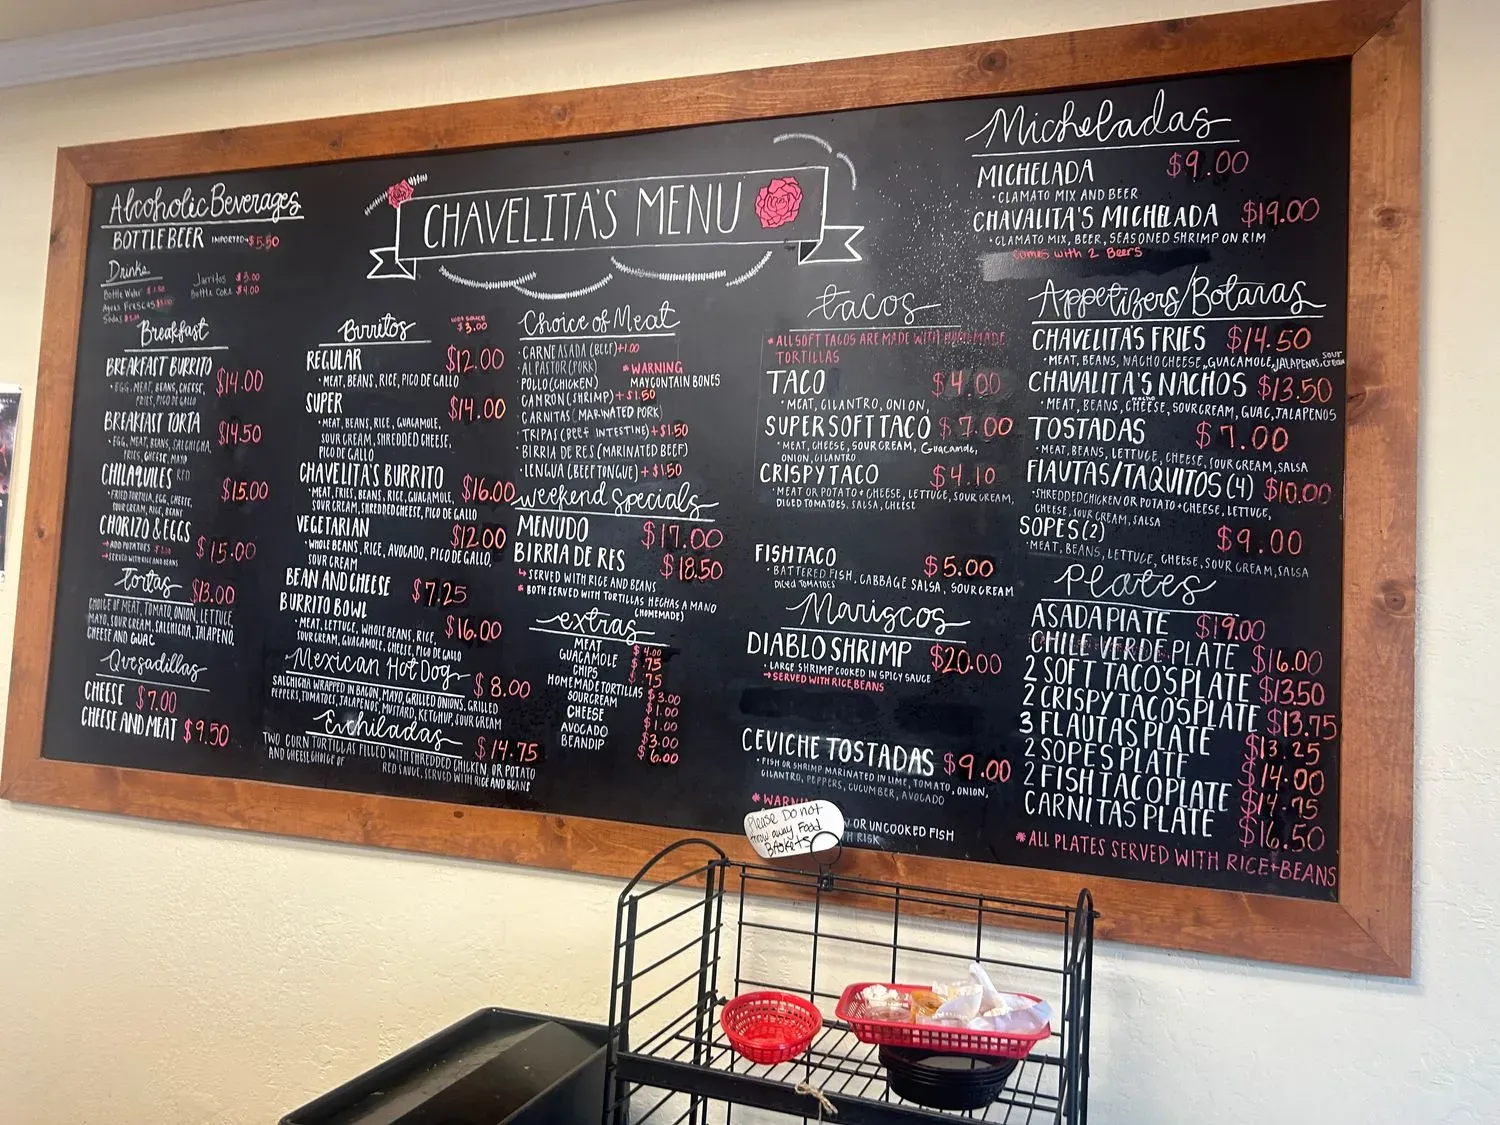 CHAVELITA'S MENU
Alcoholic Beverages
BOTTLE BEER IMPORTED $5.50
Drinks
Bottle Water
Aguas Frescas
Sodas
Jarritos $3.00
Bottle Coke $4.00
Breakfast
BREAKFAST BURRITO $14.00
• EGG, MEAT, BEANS, CHEESE,
FRIES, PICO DE GALLO
BREAKFAST TORTA $14.50
• EGG, MEAT, BEANS, SALCHICHA,
FRIES, CHEESE, MAYO
CHILAQUILES RED $15.00
• FRIED TORTILLA, EGG, CHEESE,
SOUR CREAM, RICE, BEANS
CHORIZO & EGGS $15.00
→ ADD POTATOES
→ SERVED WITH RICE AND BEANS
tortas $13.00
CHOICE OF MEAT, TOMATO, ONION, LETTUCE,
MAYO, SOUR CREAM, SALCHICHA, JALAPENO,
CHEESE AND GUAC
Quesadillas
CHEESE $7.00
CHEESE AND MEAT $9.50
Burritos
HOT SAUCE
$3.00
REGULAR $12.00
• MEAT, BEANS, RICE, PICO DE GALLO
SUPER $14.00
• MEAT, BEANS, RICE, GUACAMOLE,
SOUR CREAM, SHREDDED CHEESE,
PICO DE GALLO
CHAVELITA'S BURRITO $16.00
• MEAT, FRIES, BEANS, RICE, GUACAMOLE,
SOUR CREAM, SHREDDED CHEESE, PICO DE GALLO
VEGETARIAN $12.00
• WHOLE BEANS, RICE, AVOCADO, PICO DE GALLO,
SOUR CREAM
BEAN AND CHEESE $7.25
BURRITO BOWL $16.00
• MEAT, LETTUCE, WHOLE BEANS, RICE,
SOUR CREAM, GUACAMOLE, CHEESE, PICO DE GALLO
Mexican Hot Dog $8.00
SALCHICHA WRAPPED IN BACON, MAYO, GRILLED ONIONS, GRILLED
PEPPERS, TOMATOES, JALAPENOS, MUSTARD, KETCHUP, SOUR CREAM
Enchiladas $14.75
TWO CORN TORTILLAS FILLED WITH SHREDDED CHICKEN OR POTATO
AND CHEESE CHOICE OF RED SAUCE, SERVED WITH RICE AND BEANS
Choice of Meat
• CARNE ASADA (BEEF) +1.00
• AL PASTOR (PORK)
POLLO (CHICKEN)
CAMRON (SHRIMP) + $1.50
• CARNITAS (MARINATED PORK)
• TRIPAS (BEEF INTESTINE) + $1.50
• BIRRIA DE RES (MARINATED BEEF)
• LENGUA (BEEF TONGUE) + $1.50
* WARNING
MAY CONTAIN BONES
weekend specials
MENUDO $17.00
BIRRIA DE RES $18.50
↳ SERVED WITH RICE AND BEANS
* BOTH SERVED WITH TORTILLAS HECHAS A MANO
(HOMEMADE)
extras
MEAT $4.00
GUACAMOLE .75
CHIPS .75
HOMEMADE TORTILLAS $3.00
SOUR CREAM $1.00
CHEESE $1.00
AVOCADO $3.00
BEAN DIP $6.00
tacos
* ALL SOFT TACOS ARE MADE WITH HAND-MADE
TORTILLAS
TACO $4.00
• MEAT, CILANTRO, ONION,
SUPER SOFT TACO $7.00
• MEAT, CHEESE, SOUR CREAM, Guacamole,
ONION, CILANTRO
CRISPY TACO $4.10
• MEAT OR POTATO + CHEESE, LETTUCE, SOUR CREAM,
DICED TOMATOES, SALSA, CHEESE
FISH TACO $5.00
• BATTERED FISH, CABBAGE SALSA, SOUR CREAM
DICED TOMATOES
Mariscos
DIABLO SHRIMP $20.00
• LARGE SHRIMP COOKED IN SPICY SAUCE
→ SERVED WITH RICE, BEANS
CEVICHE TOSTADAS $9.00
• FISH OR SHRIMP MARINATED IN LIME, TOMATO, ONION,
CILANTRO, PEPPERS, CUCUMBER, AVOCADO
OR UNCOOKED FISH
RISK
Micheladas
MICHELADA $9.00
• CLAMATO MIX AND BEER
CHAVALITA'S MICHELADA $19.00
• CLAMATO MIX, BEER, SEASONED SHRIMP ON RIM
comes with 2 Beers
Appetizers/Botanas
CHAVELITA'S FRIES $14.50
• MEAT, BEANS, NACHO CHEESE, GUACAMOLE, JALAPENOS, SOUR CREAM
CHAVALITA'S NACHOS $13.50
• MEAT, BEANS, nacho CHEESE, SOUR CREAM, GUAC, JALAPENOS
TOSTADAS $7.00
• MEAT, BEANS, LETTUCE, CHEESE, SOUR CREAM, SALSA
FLAUTAS/TAQUITOS (4) $10.00
• SHREDDED CHICKEN OR POTATO + CHEESE, LETTUCE,
CHEESE, SOUR CREAM, SALSA
SOPES (2) $9.00
• MEAT, BEANS, LETTUCE, CHEESE, SOUR CREAM, SALSA
Plates
ASADA PLATE $19.00
CHILE VERDE PLATE $16.00
2 SOFT TACO'S PLATE $13.50
2 CRISPY TACO'S PLATE $13.75
3 FLAUTAS PLATE $13.25
2 SOPES PLATE $14.00
2 FISH TACO PLATE $14.75
CARNITAS PLATE $16.50
* ALL PLATES SERVED WITH RICE + BEANS
Please Do not
throw away Food
BASKETS